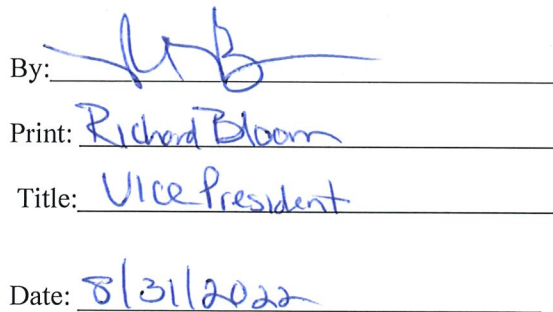 By:
Print: Richard Bloom
Title: Vice President
Date: 8/31/2022